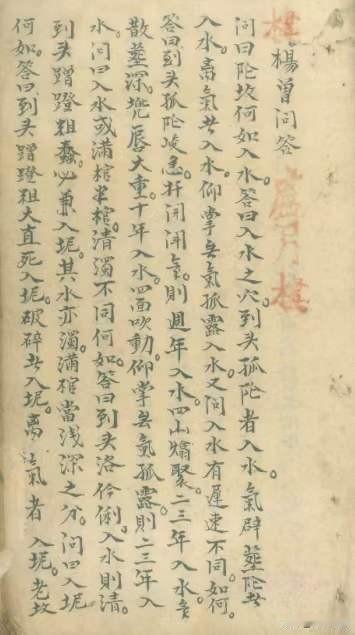 楊曾問答
問曰陀坟何如入水答曰入水之穴到头孤陀者入水。氣辟葬陀者
入水。离氣者入水。仰掌无氣孤露入水又问入水有遲速不同。如何。
答曰到头孤陀峻急。扦开闲氣。則週年入水四山
聚。二三年入水
散葬深。兜唇大重。十年入水。四面吹動。仰掌无氣孤露。則二三年入
水。问曰入水或满棺半棺。清濁不同何如。答曰到头洛伶俐。入水則清。
到头蹭蹬粗蠢。必兼入坭。其水亦濁满棺當浅深之分。问曰入坭
何如。答曰到头蹭蹬粗大直死入坭。破碎者入坭。离氣者入坭。老坟